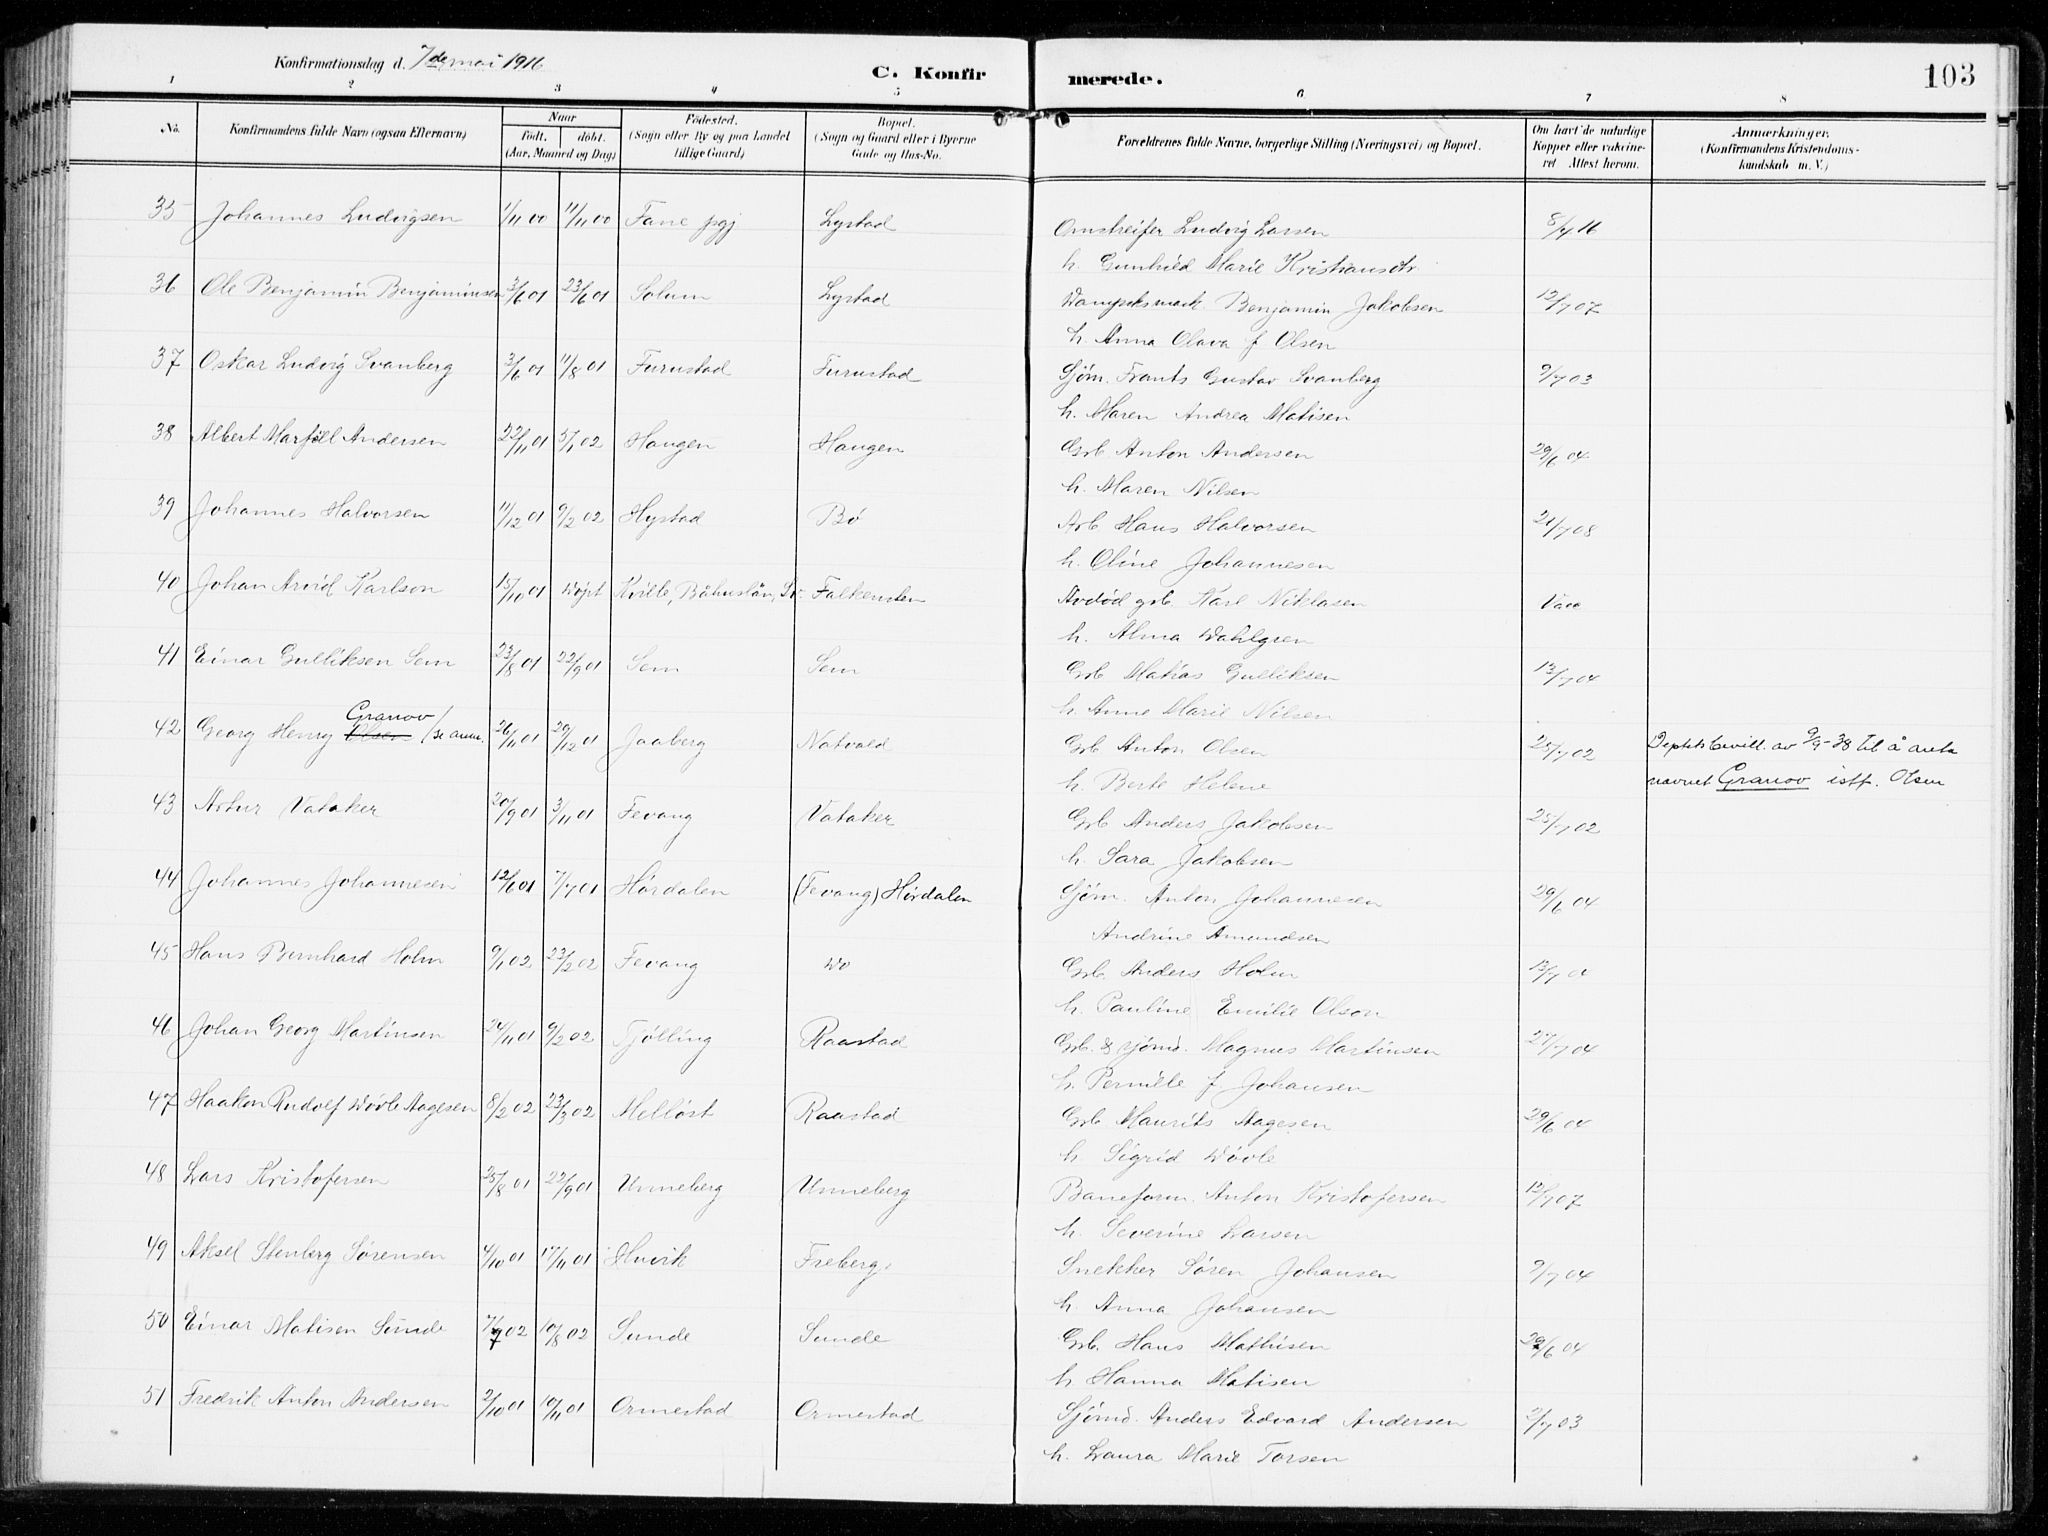 Konfirmationsdag d. 7de mai 1916
C. Konfirmerede.
103
1 2 3 4 5 6 7 8
No. Konfirmandens fulde Navn (ogsaa Efternavn) Naar født. døbt. (Aar, Maaned og Dag) Fødested. (Sogn eller By og paa Landet tillige Gaard) Bopæl. (Sogn og Gaard eller i Byerne Gade og Hus-No. Forældrenes fulde Navne, borgerlige Stilling (Næringsvei) og Bopæl. Om havt de naturlige Kopper eller vakcineret Attest herom. Anmærkninger. (Konfirmandens Kristendomskundskab m. V.)
35 Johannes Ludvigsen 1/11 00 11/11 00 Fane pgj Lystad Omstreifer Ludvig Larsen 8/4 16
h. Gunhild Marie Kristiansdtr
36 Ole Benjamin Benjaminsen 3/6 01 23/6 01 Solum Lystad Benjamin Jakobsen 12/7 07
h. Anna Olava f Olsen
37 Oskar Ludvig Svanberg 3/6 01 11/8 01 Furustad Furustad Sjøm. Frants Gustav Svanberg 9/7 03
h. Maren Andrea Matisen
38 Albert Marfell Andersen 22/11 01 5/1 02 Haugen Haugen Grb. Anton Andersen 29/6 04
h. Maren Nilsen
39 Johannes Halvorsen 11/12 01 9/2 02 Hystad Bø Arb Hans Halvorsen 21/7 08
h. Oline Johannesen
40 Johan Arvid Karlson 15/10 01 Døpt Kville, Båhuslän, Sv. Falkensten Avdød grb. Karl Niklasen Vacc
h. Alma Dahlgren
41 Einar Gulliksen Sem 23/8 01 22/9 01 Sem Sem Grb Matias Gulliksen 13/7 04
h. Anne Marie Nilsen
42 Georg Henry Olsen Granov / se anm. 26/11 01 29/12 01 Jaaberg Natvald Grb Anton Olsen 25/7 02 Deptsbevill. av 9/9-38 til å anta
h. Berte Helene navnet Granov istf. Olsen
43 Artur Vataker 20/9 01 3/11 01 Fevang Vataker Grb Anders Jakobsen 25/7 02
h. Sara Jakobsen
44 Johannes Johannesen 12/6 01 7/7 01 Hørdalen (Fevang) Hørdalen Sjøm. Anton Johannesen 29/6 04
Andrine Amundsen
45 Hans Bernhard Holm 9/1 02 23/2 02 Fevang Do Grb. Anders Holm
h. Pauline Emilie Olson
46 Johan Georg Martinsen 24/11 01 9/2 02 Tjølling Raastad Grb. & sjømd. Magnus Martinsen 27/7 04
h. Pernille f. Johansen
47 Haakon Rudolf Dövle Aagesen 8/2 02 23/3 02 Melløst Raastad Grb Maurits Aagesen 29/6 04
h Sigrid Dövle
48 Lars Kristofersen 25/8 01 22/9 01 Unneberg Unneberg Baneform. Anton Kristofersen 12/7 07
h. Severine Larsen
49 Aksel Stenberg Sørensen 4/10 01 17/11 01 Huvik Freberg Snekker Søren Johansen 9/7 04
h. Anna Johansen
50 Einar Matisen Sunde 7/7 02 10/8 02 Sunde Sunde Grb. Hans Mathisen 29/6 04
h Hanna Matisen
51 Fredrik Anton Andersen 2/10 01 10/11 01 Ormestad Ormestad Sjømd. Anders Edvard Andersen 2/7 03
h. Laura Marie Torsen